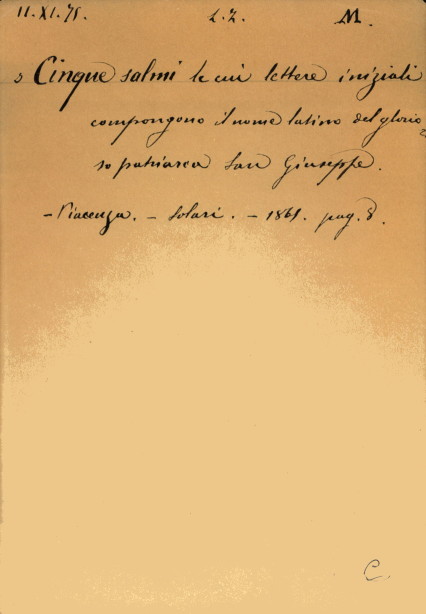 11.XI.75. L.Z. M.
5 Cinque salmi le cui lettere iniziali
compongono il nome latino del glorio=
so patriarca San Giuseppe.
- Piacenza. - Solari. - 1861. pag. 8.
C